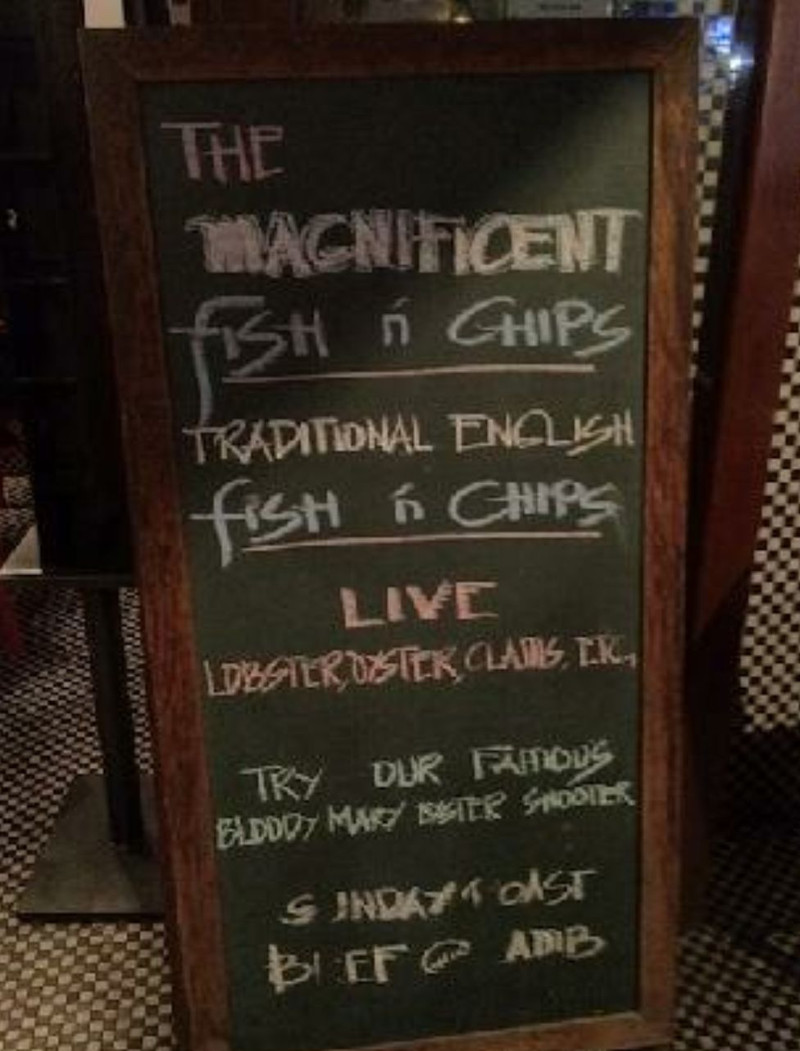 THE
MAGNIFICENT
fisH n' CHIPS
TRADITIONAL ENGLISH
fisH n' CHIPS
LIVE
LOBSTER, OYSTER, CLAMS, ETC.,
TRY OUR FAMOUS
BLOODY MARY SHOOTER